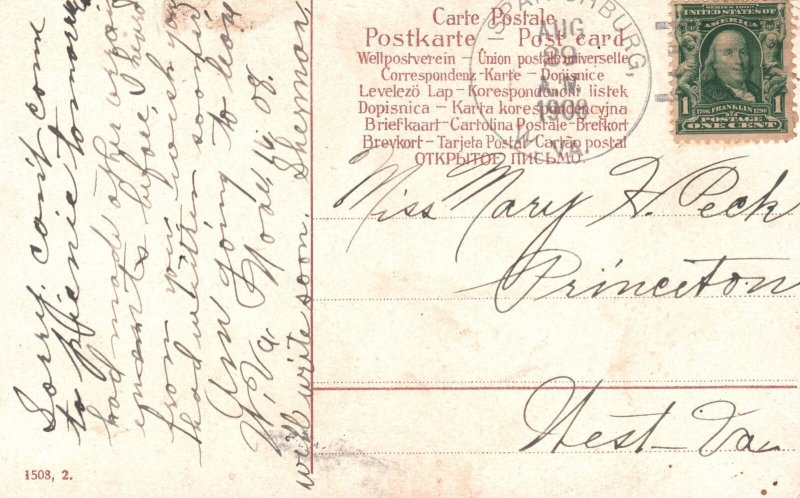 Carte Postale
Postkarte — Post card
Weltpostverein — Union postale universelle
Correspondenz-Karte — Dopisnice
Levelező Lap - Korespondenčni listek
Dopisnica — Karta korespondencyjna
Briefkaart - Cartolina Postale - Brefkort
Brevkort - Tarjeta Postal - Cartão postal
ОТКРЫТОЕ ПИСЬМО
SPANISHBURG,
AUG
29
A.M.
1908
W. VA.
SERIES 1902
UNITED STATES OF
AMERICA
1706 FRANKLIN 1790
1 1
POSTAGE
ONE CENT
Miss Mary H. Peck
Princeton
West-Va
Sorry, can't come
to picnic tomorrow
had made other arrange
ments before, I heard
from you, wish you
had written sooner
Am going to leave
W. Va Nov 14, 08.
will write soon. Sherman
1503, 2.